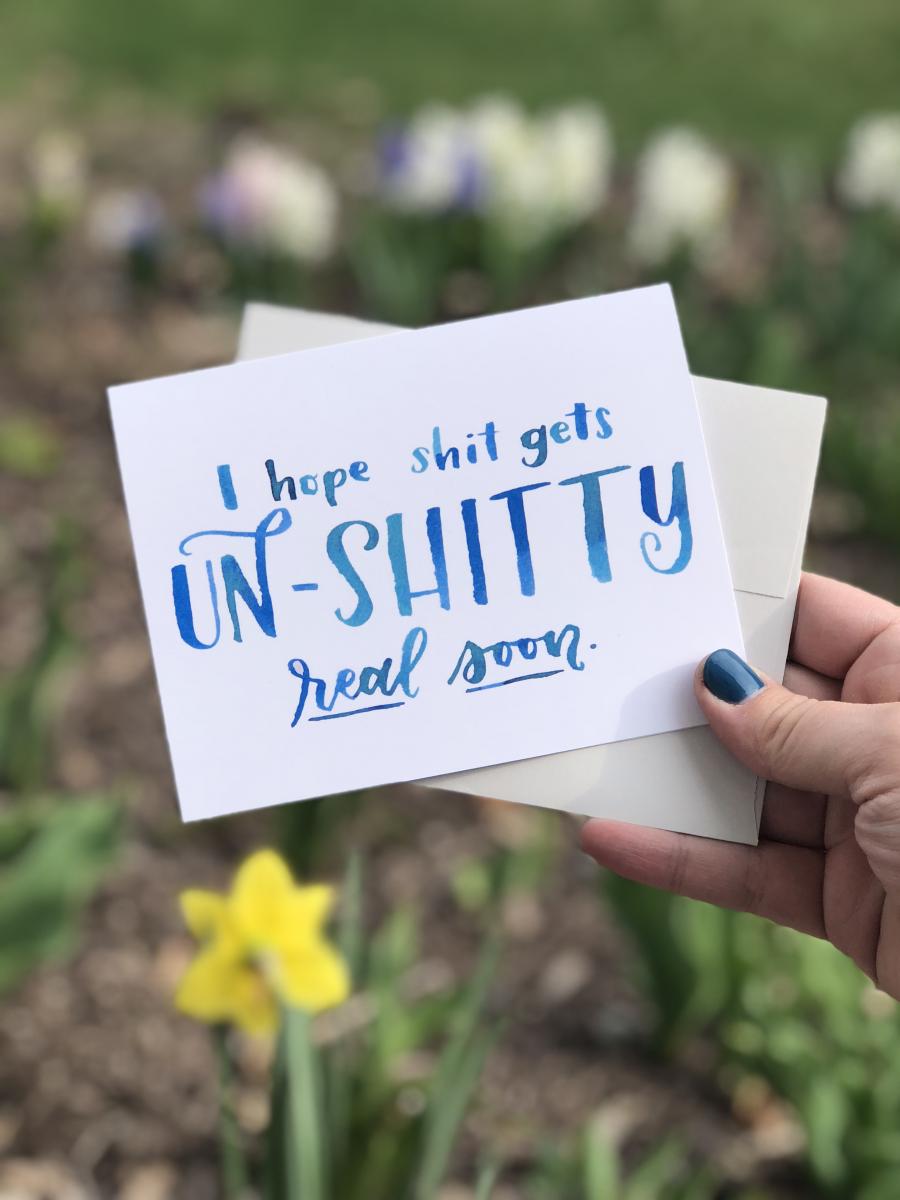 I hope shit gets
UN-SHITTY
real soon.